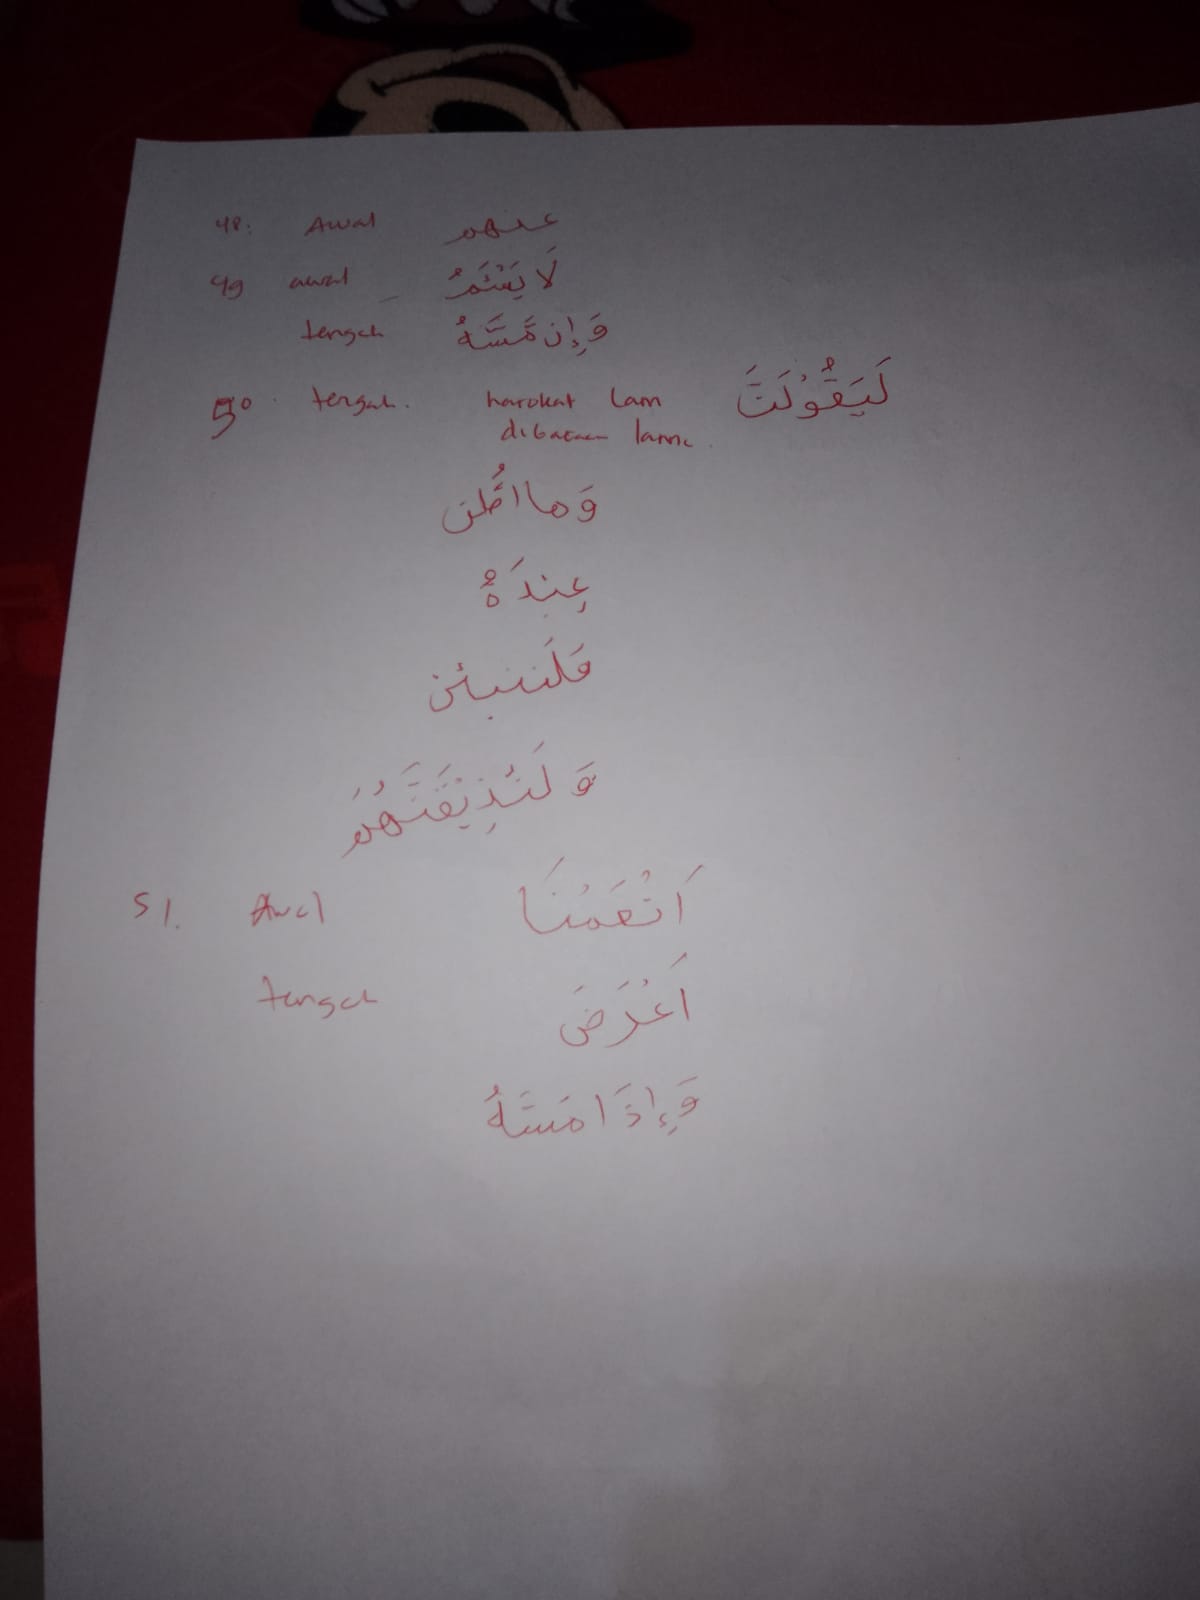 48. Awal عنهم
49 awal لَا يَسْـَٔمُ
tengah وَإِن مَّسَّهُ
50. tengah. harokat lam لَيَقُوْلَنَّ
dibacaan lam
وَما اظُن
عِندَهٗ
فَلَننبئن
وَلَنُذِيْقَنَّهُمْ
51. Awal اَنْعَمْنَا
tengah اَعْرَضَ
وَإِذَا مَسَّهُ